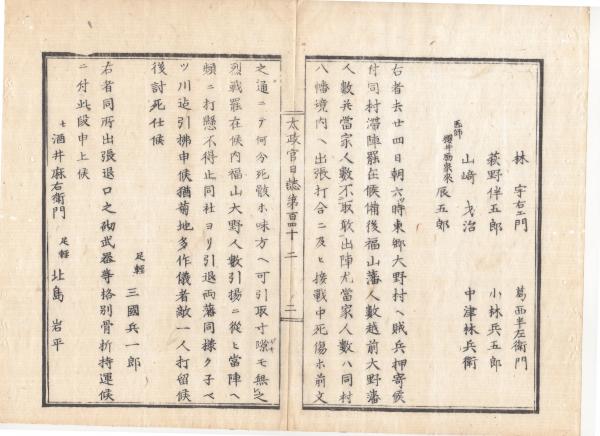 林 宇右エ門　葛西半左衛門
萩野伴五郎　小林兵五郎
山崎戈治　中津林兵衛
医師 櫻井 家来 辰五郎
右者去廿四日朝六ツ時東郷大野村ヘ賊兵押寄候
付同村滞陣罷在候備後福山藩人數越前大野藩
人數共當家人數不取敢出陣尤當家人數ハ同村
八幡境内ヘ出張打合ニ及ヒ接戰中死傷ホ前文
太政官日誌第百四十二
二
之通ニテ何分死骸ホ味方ヘ可引取寸隙モ無之
烈戰罷在候内福山大野人數引揚ニ從ヒ當陣ヘ
頻ニ打懸不得止同社ヨリ引退両藩同様クネベ
ツ川迠引拂申候猶菊地多作儀者敵一人打留候
後討死仕候
足軽 三國兵一郎
右者同所出張退口之砌武器等格別骨折持運候
ニ付此段申上候
七 酒井麻右衛門　足軽 北島岩平